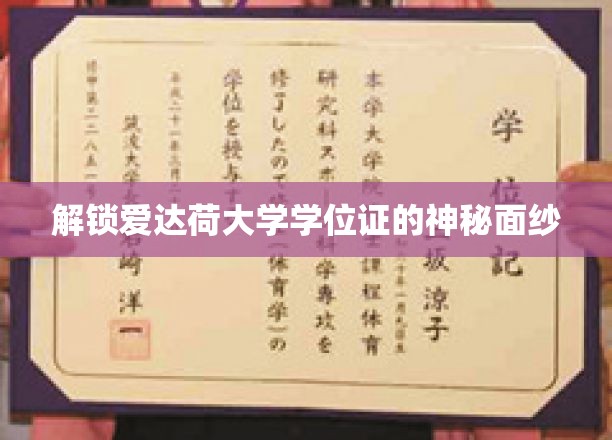 解锁爱达荷大学学位证的神秘面纱
学位記
坂涼子
本学大学院 士課程体育
研究科スポー 科学専攻を
修了したので (体育学)の
学位を授与す
平成二十一年三月二
筑波大学 岩崎洋一
修甲第二二八五一号